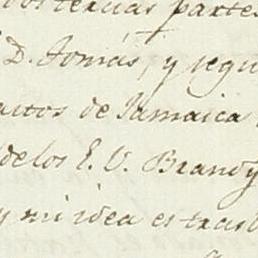 dos tercias partes
D. Tomás, y segu
autos de Jamaica
de los E. V. Brandy
y mi idea es trasl